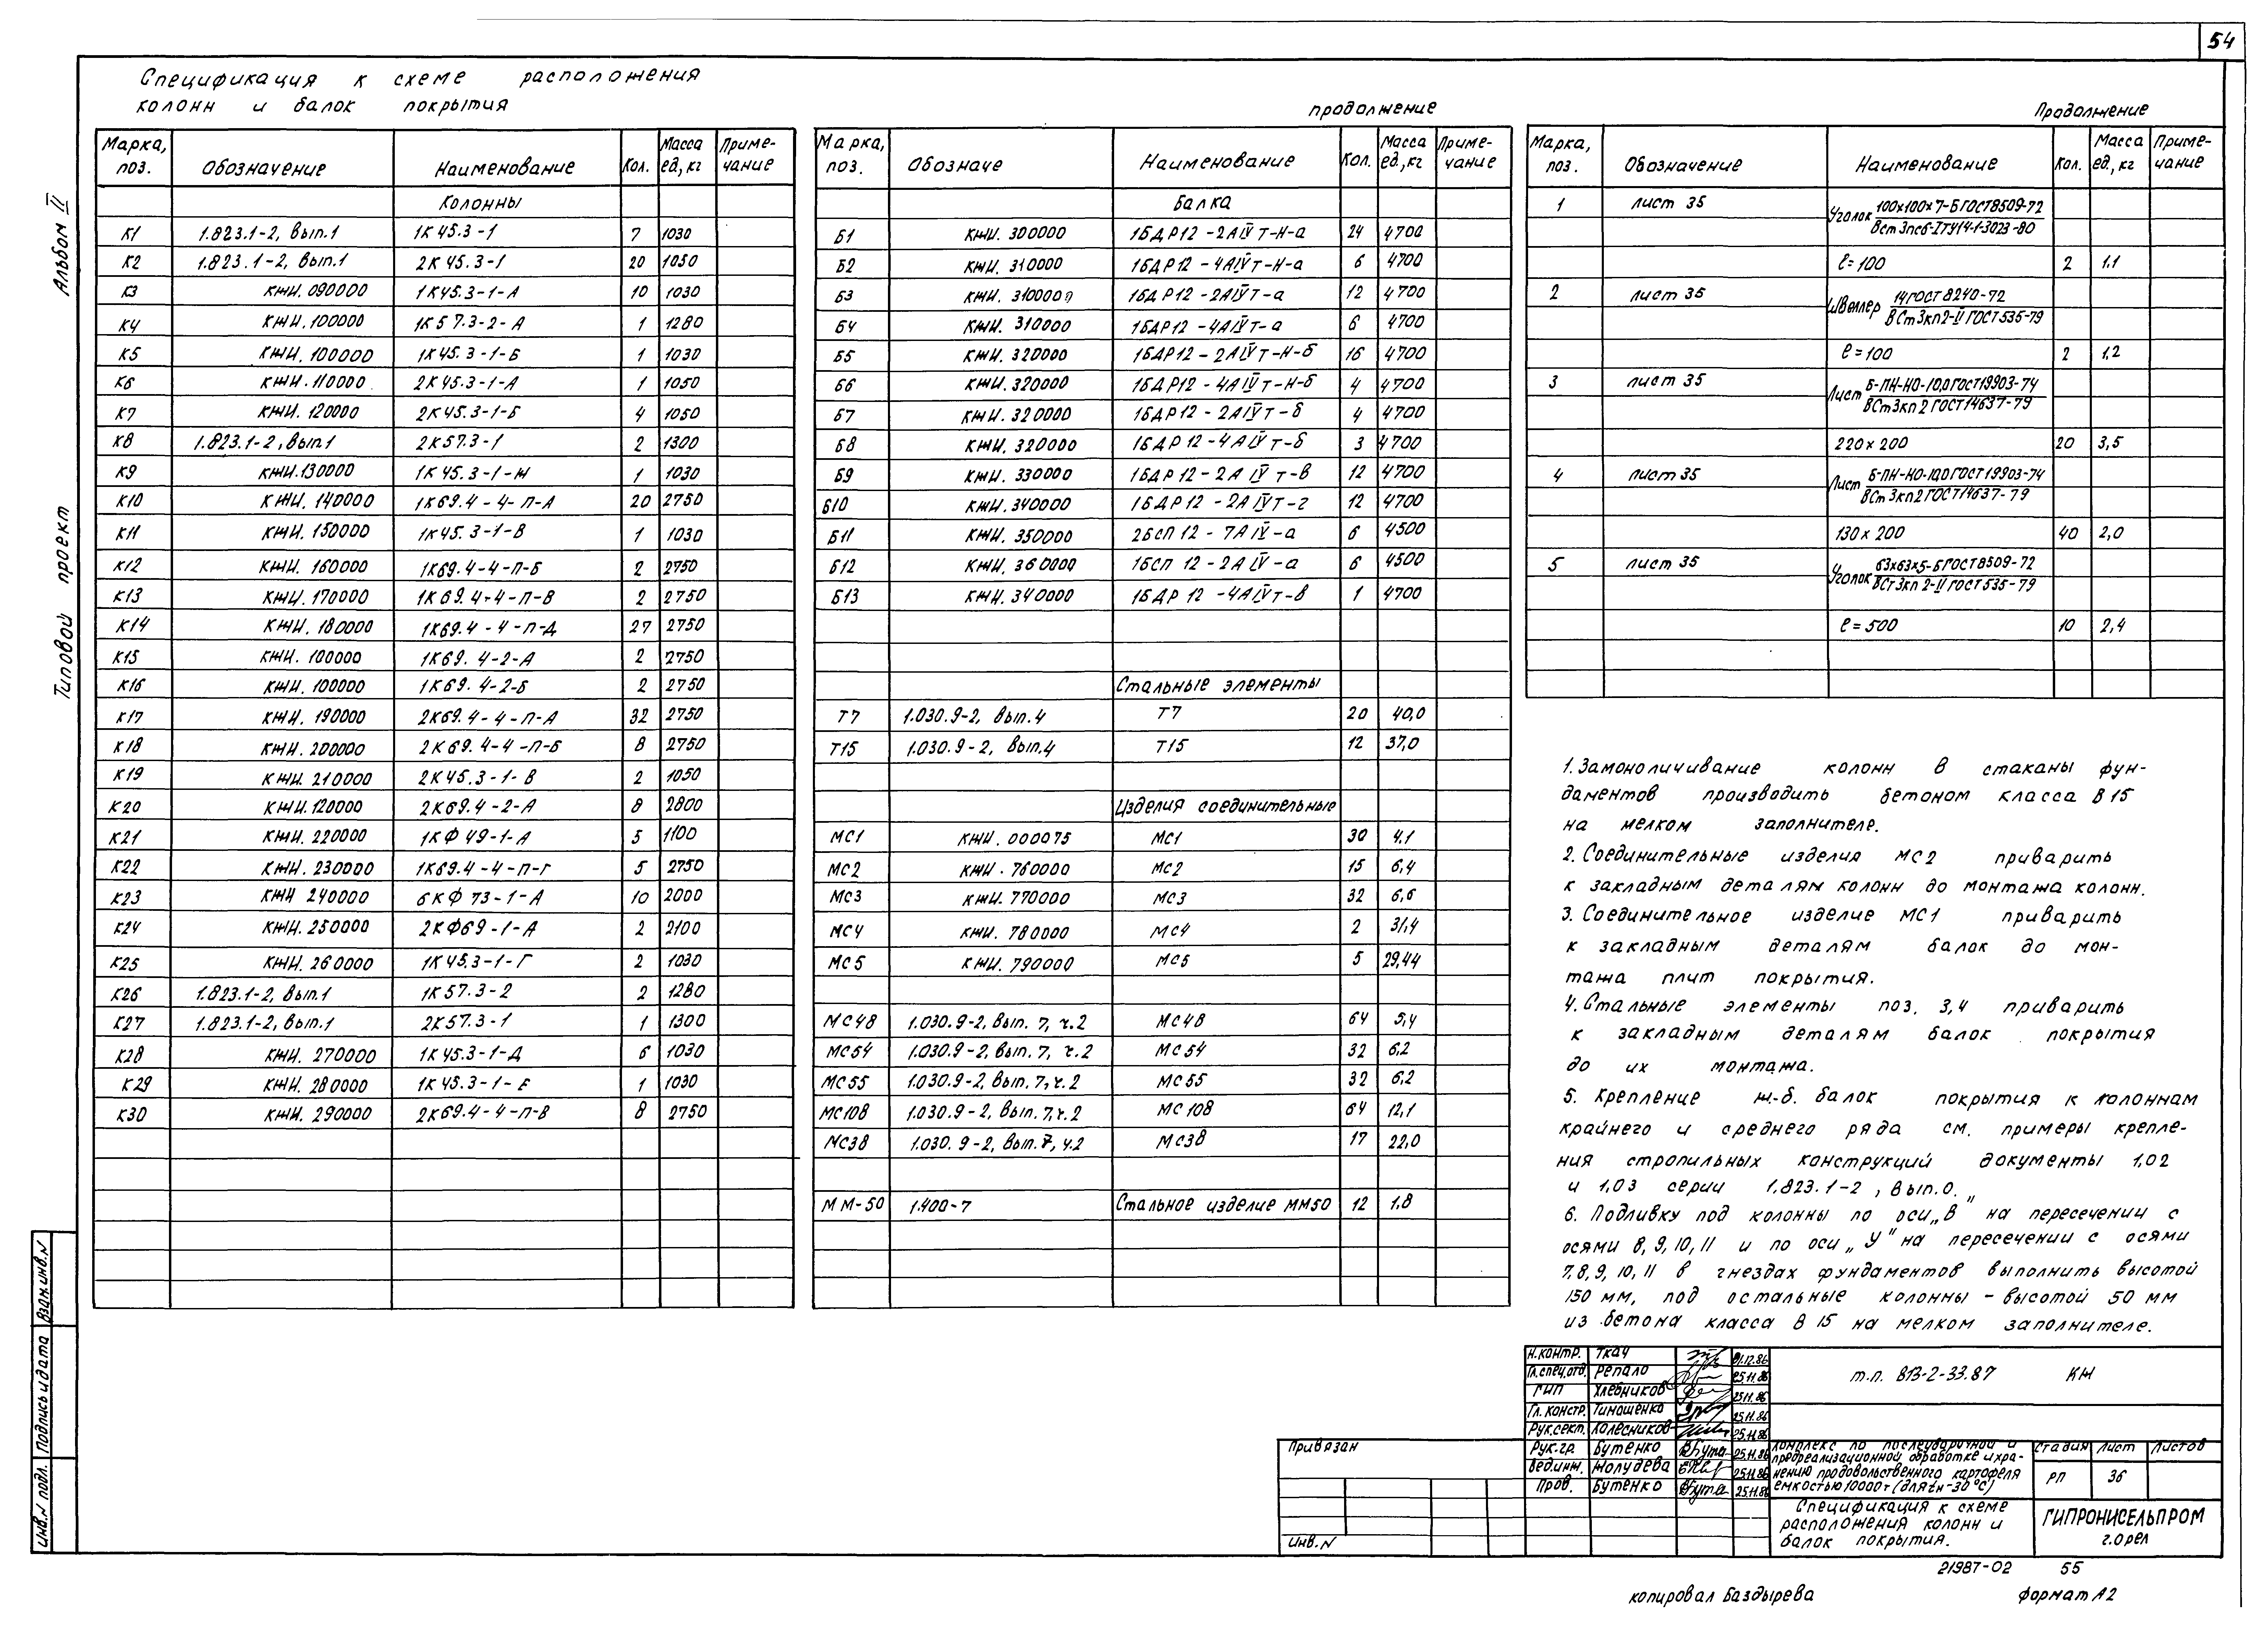 54
Спецификация к схеме расположения
колонн и балок покрытия
Марка, поз. Обозначение Наименование Кол. Масса ед, кг Приме-чание
Колонны
К1 1.823.1-2, вып.1 1К45.3-1 7 1030
К2 1.823.1-2, вып.1 2К45.3-1 20 1050
К3 КЖИ. 090000 1К45.3-1-А 10 1030
К4 КЖИ. 100000 1К57.3-2-А 1 1280
К5 КЖИ. 100000 1К45.3-1-Б 1 1030
К6 КЖИ. 110000 2К45.3-1-А 1 1050
К7 КЖИ. 120000 2К45.3-1-Б 4 1050
К8 1.823.1-2, вып.1 2К57.3-1 2 1300
К9 КЖИ.130000 1К45.3-1-Ж 1 1030
К10 КЖИ. 140000 1К69.4-4-П-А 20 2750
К11 КЖИ. 150000 1К45.3-1-В 1 1030
К12 КЖИ. 160000 1К69.4-4-П-Б 2 2750
К13 КЖИ. 170000 1К69.4-4-П-В 2 2750
К14 КЖИ. 180000 1К69.4-4-П-Д 27 2750
К15 КЖИ. 100000 1К69.4-2-А 2 2750
К16 КЖИ. 100000 1К69.4-2-Б 2 2750
К17 КЖИ. 190000 2К69.4-4-П-А 32 2750
К18 КЖИ. 200000 2К69.4-4-П-Б 8 2750
К19 КЖИ. 210000 2К45.3-1-В 2 1050
К20 КЖИ.120000 2К69.4-2-А 8 2800
К21 КЖИ. 220000 1КФ49-1-А 5 1100
К22 КЖИ. 230000 1К69.4-4-П-Г 5 2750
К23 КЖИ 240000 6КФ 73-1-А 10 2000
К24 КЖИ. 250000 2КФ69-1-А 2 2100
К25 КЖИ. 260000 1К45.3-1-Г 2 1030
К26 1.823.1-2, вып.1 1К57.3-2 2 1280
К27 1.823.1-2, вып.1 2К57.3-1 1 1300
К28 КЖИ. 270000 1К45.3-1-Д 6 1030
К29 КЖИ. 280000 1К45.3-1-Е 1 1030
К30 КЖИ. 290000 2К69.4-4-П-В 8 2750
продолжение
Марка, поз. Обозначе Наименование Кол. Масса ед., кг Приме-чание
Балка
Б1 КЖИ. 300000 1БДР12-2АIVт-Н-а 24 4700
Б2 КЖИ. 310000 1БДР12-4АIVт-Н-а 6 4700
Б3 КЖИ. 310000 1БДР12-2АIVт-а 12 4700
Б4 КЖИ. 310000 1БДР12-4АIVт-а 6 4700
Б5 КЖИ. 320000 1БДР12-2АIVт-Н-б 16 4700
Б6 КЖИ. 320000 1БДР12-4АIVт-Н-б 4 4700
Б7 КЖИ. 320000 1БДР12-2АIVт-б 4 4700
Б8 КЖИ. 320000 1БДР12-4АIVт-б 3 4700
Б9 КЖИ. 330000 1БДР12-2АIVт-в 12 4700
Б10 КЖИ.340000 1БДР12-2АIVт-г 12 4700
Б11 КЖИ. 350000 2БСП12-7АIV-а 6 4500
Б12 КЖИ. 360000 1БСП12-2АIV-а 6 4500
Б13 КЖИ. 340000 1БДР12-4АIVт-в 1 4700
Стальные элементы
Т7 1.030.9-2, вып.4 Т7 20 40,0
Т15 1.030.9-2, вып.4 Т15 12 37,0
Изделия соединительные
МС1 КЖИ. 000075 МС1 30 4,1
МС2 КЖИ. 760000 МС2 15 6,4
МС3 КЖИ. 770000 МС3 32 6,6
МС4 КЖИ. 780000 МС4 2 31,4
МС5 КЖИ. 790000 МС5 5 29,44
МС48 1.030.9-2, вып. 7, ч.2 МС48 64 5,4
МС54 1.030.9-2, вып. 7, ч.2 МС54 32 6,2
МС55 1.030.9-2, вып. 7, ч.2 МС55 32 6,2
МС108 1.030.9-2, вып. 7, ч.2 МС108 64 12,1
МС38 1.030.9-2, вып. 7, ч.2 МС38 17 22,0
ММ-50 1.400-7 Стальное изделие ММ50 12 1.8
Продолжение
Марка, поз. Обозначение Наименование Кол. Масса ед., кг Приме-чание
1 лист 35 Уголок 100х100х7-Б ГОСТ8509-72
ВСт3пс6-I ТУ14-1-3023-80
ℓ=100 2 1,1
2 лист 35 Швеллер 14 ГОСТ 8240-72
ВСт3кп2-II ГОСТ 535-79
ℓ=100 2 1,2
3 лист 35 Лист Б-ПН-НО-10,0 ГОСТ19903-74
ВСт3кп2 ГОСТ14637-79
220×200 20 3,5
4 лист 35 Лист Б-ПН-НО-10,0 ГОСТ19903-74
ВСт3кп2 ГОСТ14637-79
130×200 40 2,0
5 лист 35 Уголок 63х63х5-Б ГОСТ8509-72
ВСт3кп2-II ГОСТ535-79
ℓ=500 10 2,4
1. Замоноличивание колонн в стаканы фун-
даментов производить бетоном класса В15
на мелком заполнителе.
2. Соединительные изделия МС2 приварить
к закладным деталям колонн до монтажа колонн.
3. Соединительное изделие МС1 приварить
к закладным деталям балок до мон-
тажа плит покрытия.
4. Стальные элементы поз. 3,4 приварить
к закладным деталям балок покрытия
до их монтажа.
5. Крепление ж.-б. балок покрытия к колоннам
крайнего и среднего ряда см. примеры крепле-
ния стропильных конструкций документы 1.02
и 1.03 серии 1.823.1-2, вып.0.
6. Подливку под колонны по оси „В" на пересечении с
осями 8, 9, 10, 11 и по оси „У" на пересечении с осями
7, 8, 9, 10, 11 в гнездах фундаментов выполнить высотой
150 мм, под остальные колонны - высотой 50 мм
из бетона класса В 15 на мелком заполнителе.
Альбом II
Типовой проект
Взам.инв.N
Подпись и дата
Инв.N подл.
Н.контр. Ткач 01.12.86
Гл.спец.отд. Репало 25.11.86
ГИП Хлебников 25.11.86
Гл. констр. Тимошенко 25.11.86
Рук.сект. Колесников 25.11.86
Рук.гр. Бутенко 25.11.86
Вед.инж. Жолудева 25.11.86
Пров. Бутенко 25.11.86
т.п. 813-2-33.87 КЖ
Комплекс по послеуборочной и
предреализационной обработке и хра-
нению продовольственного картофеля
емкостью 10000т (для tн-30°С)
Стадия Лист Листов
РП 36
Спецификация к схеме
расположения колонн и
балок покрытия.
ГИПРОНИСЕЛЬПРОМ
г.Орел
Привязан
Инв.N
21987-02 55
копировал Баздырева формат А2